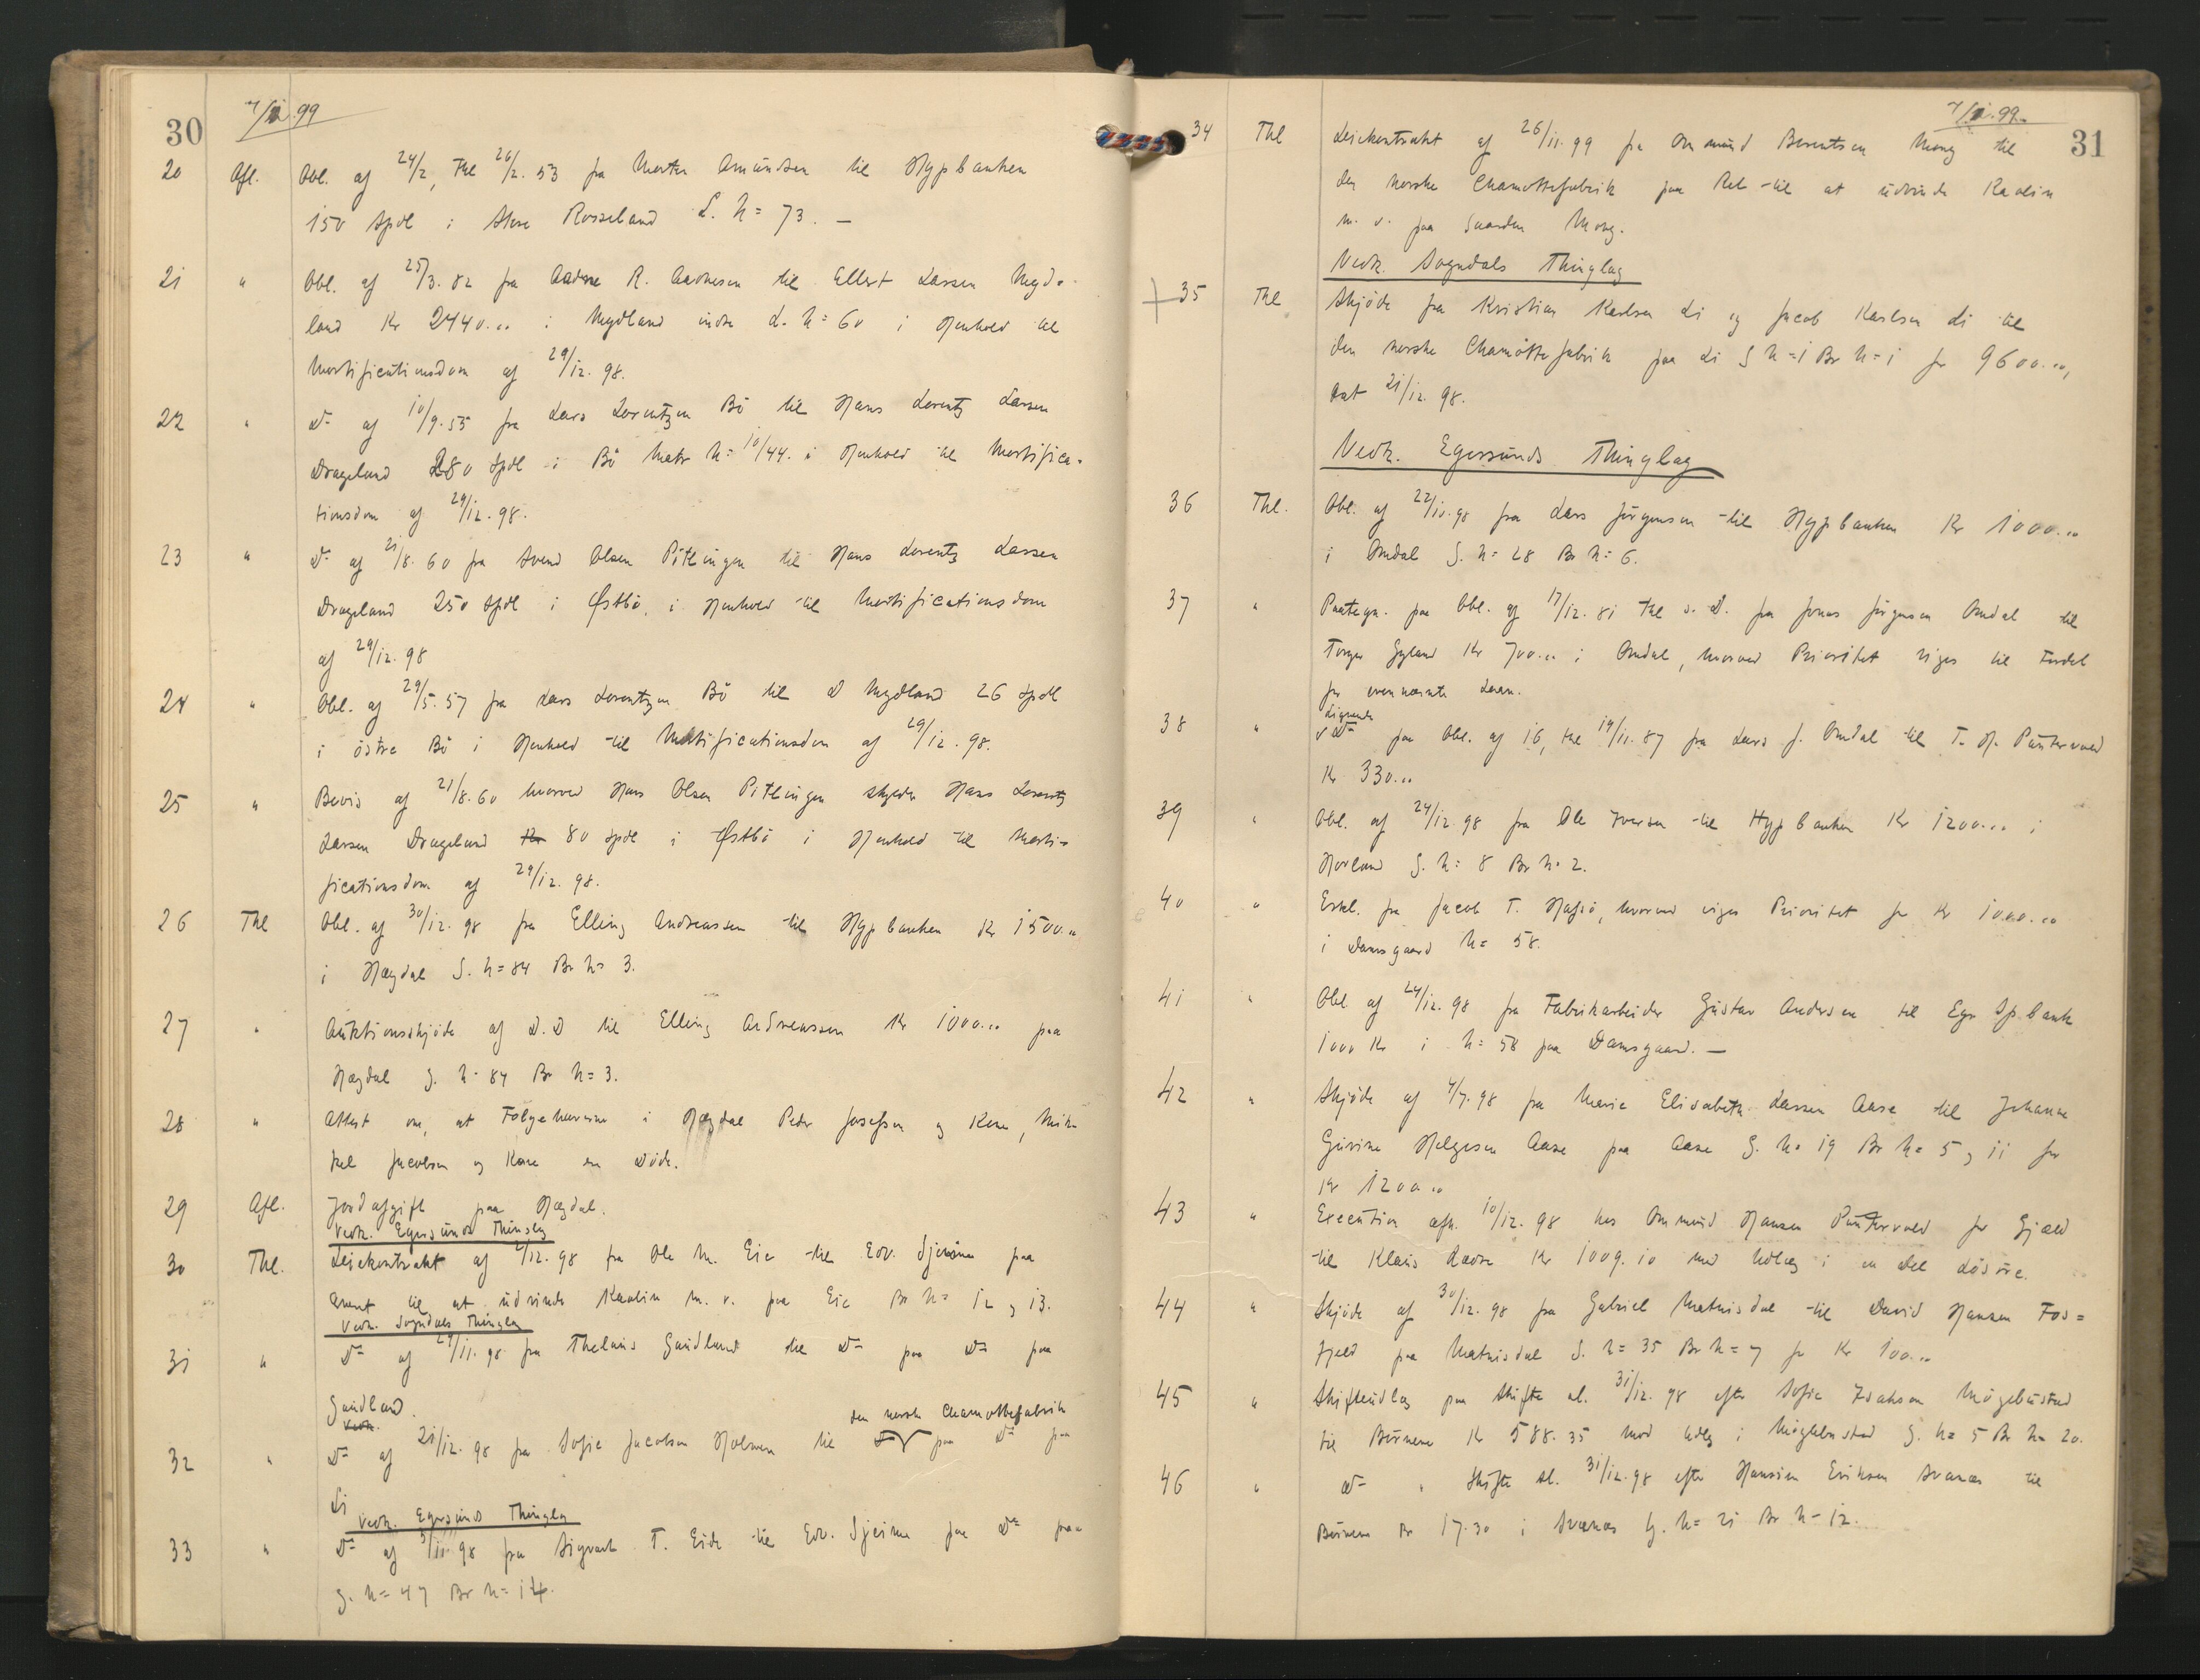 30 7/1 99
20 Afl. Obl. af 24/2, Thl 26/2. 53 fra Morten Amundsen til Hypbanken
150 Spdl i Store Rosseland L. N= 73. —
21 " Obl. af 25/3. 82 fra Aadne R. Aadnesen til Ellert Larsen Mydº
land Kr 2440.00 i Mydland indre L. N= 60 i Henhold til
Mortificationsdom af 29/12. 98.
22 " Dº af 10/9. 55 fra Lars Lorentzen Bö til Hans Lorentz Larsen
Drageland 280 Spdl i Bö Matr N= 10/44. i Henhold til Mortifica=
tionsdom af 29/12. 98.
23 " Dº af 21/8. 60 fra Svend Olsen Pitlingen til Hans Lorentz Larsen
Drageland 250 Spdl i Østbö, i Henhold til Mortificationsdom
af 29/12. 98
24 " Obl. af 29/5. 57 fra Lars Lorentzen Bö til D Mydland 26 Spdl
i östre Bö i Henhold til Mortificationsdom af 29/12. 98.
25 " Bevis af 21/8. 60 hvorved Hans Olsen Pitlingen skylder Hans Lorentz
Larsen Drageland Kr 80 Spdl i Østbö i Henhold til Morti=
ficationsdom af 29/12. 98.
26 Thl Obl. af 30/12. 98 fra Elling Andreassen til Hypbanken Kr 1500.00
i Hægdal G. N= 84 Br N= 3.
27 " Auktionsskjöde af D.D til Elling Andreassen Kr 1000.00 paa
Hægdal G. N= 84 Br N= 3.
28 " Attest om, at Folgehaverne i Hægdal Peder Josefsen og Kone, Mik=
kel Jacobsen og Kone er döde.
29 Afl. Jordafgift paa Hægdal.
Vedk. Egersunds Thinglag
30 Thl. Leiekontrakt af /12. 98 fra Ole M. Eie til Edv. Sjeime paa
Grunt til at udvinde Kaolin m. v. paa Eie Br N= 12 og 13.
Vedk. Sogndals Thinglag
31 " Dº af 29/11. 98 fra Thelaus Guidland til Dº paa Dº paa
Guidland.
Vedk.
den norske Chamottefabrik
32 " Dº af 21/12. 98 fra Sofie Jacobsen Holmen til Dº paa Dº paa
Li
Vedk. Egersunds Thinglag
33 " Dº af /11. 98 fra Sigvart T. Eide til Edv. Sjeime paa Dº paa
G. N= 47 Br N= 14.
7/1. 99. 31
34 Thl Leiekontrakt af 26/11. 99 fra Ommund Berentsen Mong til
den norske Chamottefabrik paa Ret til at udvinde Kaolin
m. v. paa Gaarden Mong.
Vedk. Sogndals Thinglag
35 Thl Skjöde fra Kristian Karlsen Li og Jacob Karlsen Li til
den norske Chamottefabrik paa Li G N= 1 Br N= 1 for 9600.00,
dat 21/12. 98.
Vedk. Egersunds Thinglag
36 Thl. Obl. af 22/10. 98 fra Lars Jörgensen til Hypbanken Kr 1000.00
i Omdal G. N= 28 Br N= 6.
37 " Paategn. paa Obl. af 17/12. 81 Thl s. D. fra Jonas Jörgensen Omdal til
Torger Gyland Kr 700.00 i Omdal, hvorved Prioritet viges til Fordel
for ovennævnte Laan.
38 " Lignende Dº paa Obl. af 16, thl 19/11. 87 fra Lars J. Omdal til T. H. Puntervold
Kr 330.00
39 " Obl. af 24/12. 98 fra Ole Iversen til Hypbanken Kr 1200.00 i
Hovland G. N= 8 Br N= 2.
40 " Erkl. fra Jacob T. Hafsö, hvorved viges Prioritet for Kr 1000.00
i Damsgaard N= 58.
41 " Obl af 24/12. 98 fra Fabrikarbeider Gustav Andersen til Egr Sp.bank
1000 Kr i N= 58 paa Damsgaard. —
42 " Skjöde af 4/7. 98 fra Marie Elisabeth Larsen Aase til Johanne
Gurine Helgesen Aase paa Aase G. N= 19 Br N= 5 og 11 for
Kr 1200.00
43 " Execution afh. 10/12. 98 hos Ommund Hansen Puntervold for Gjæld
til Klaus Ladre Kr 1009.10 med Udlæg i en Del Lösöre.
44 " Skjöde af 30/12. 98 fra Gabriel Matnisdal til David Hansen Fos=
fjeld paa Matnisdal G. N= 35 Br N= 7 for Kr 100.00
45 " Skifteudlæg paa Skifte sl. 31/12. 98 efter Sofie Isaksen Mögebustad
til Börnene Kr 588.35 mod Udlæg i Mögebustad G. N= 5 Br N= 20.
46 " Dº " Skifte sl. 31/12. 98 efter Hansine Eriksen Svanæs til
Börnene Kr 17.30 i Svanæs G. N= 21 Br N= 12.